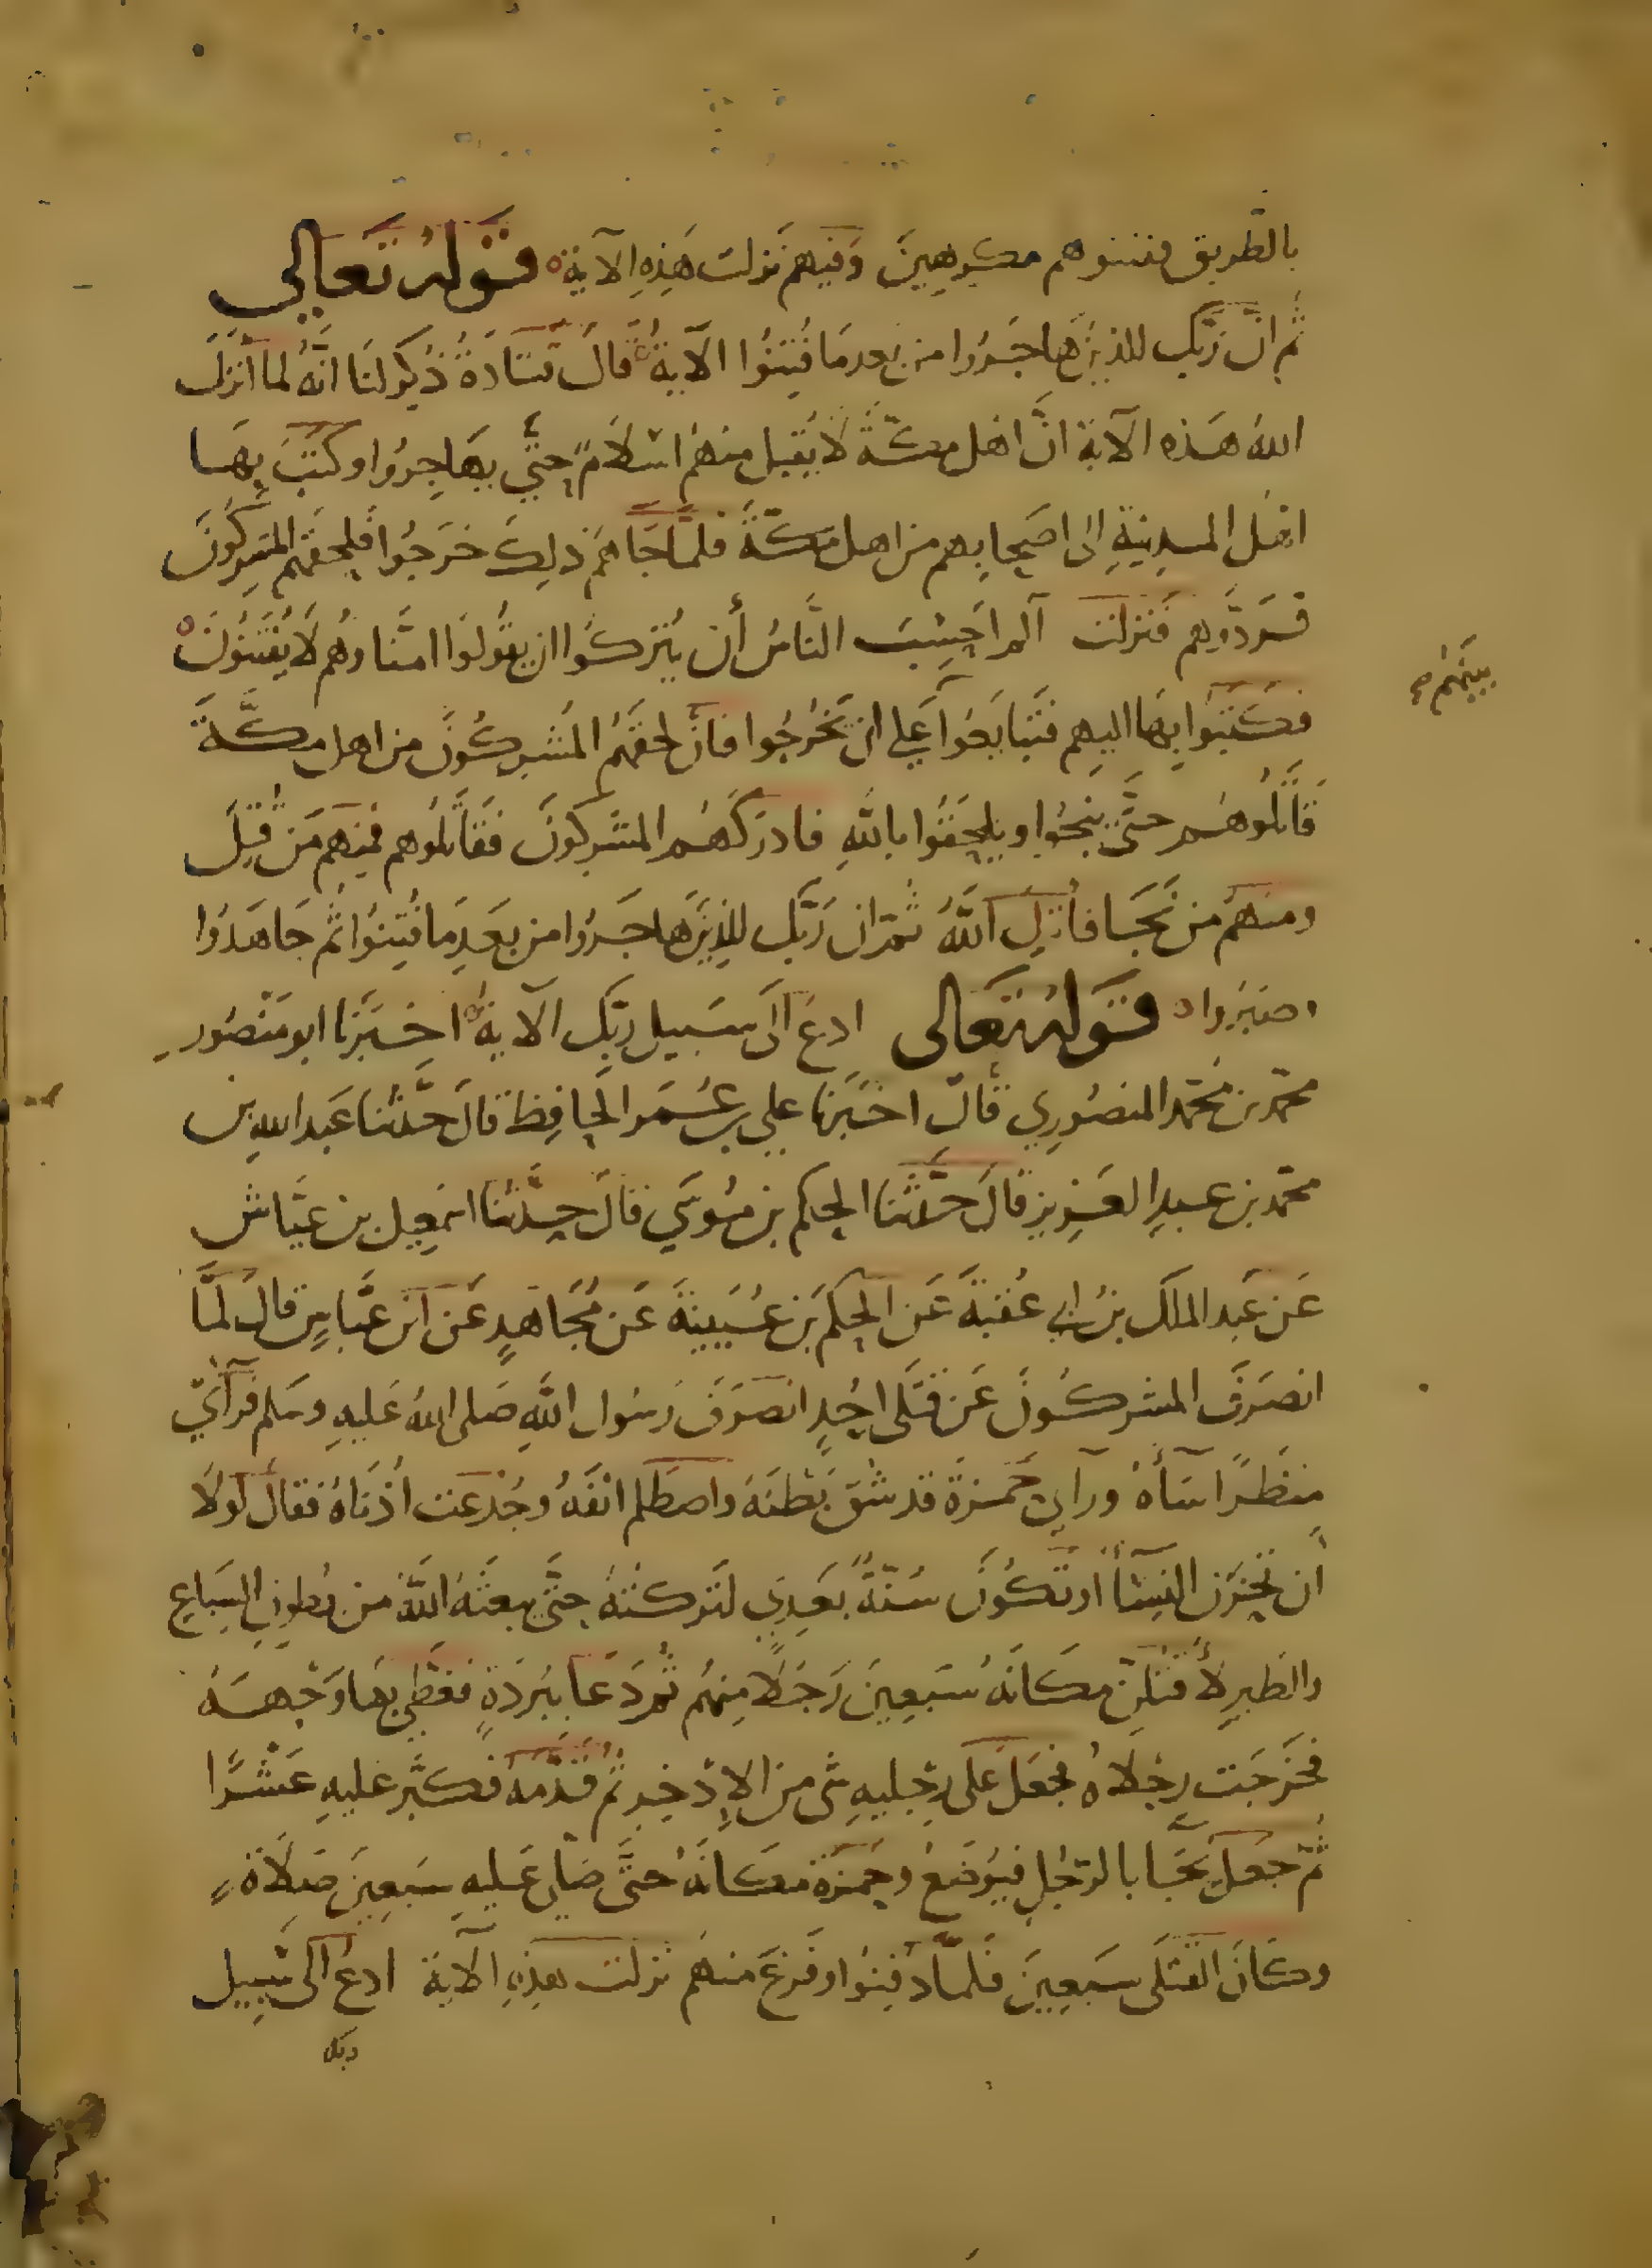 بالطريق ففتنوهم مكرهين وفيهم نزلت هذه الآية قوله تعالى
ثم ان ربك للذين هاجروا من بعد ما فتنوا الآية قال قتادة ذكر لنا انه لما انزل
الله هذه الآية ان اهل مكة لا يقبل منهم اسلام حتى يهاجروا وكتب بها
اهل المدينة الى اصحابهم من اهل مكة فلما جاهم ذلك خرجوا فلحقهم المشركون
فردوهم فنزلت آلم احسب الناس أن يتركوا ان يقولوا امنا وهم لا يفتنون
بينهم صح
فكتبوا بها اليهم فتبايعوا على ان يخرجوا فان لحقهم المشركون من اهل مكة
قاتلوهم حتى ينجوا ويلحقوا بالله فادركهم المشركون فقاتلوهم فمنهم من قتل
ومنهم من نجا فأنزل الله ثم ان ربك للذين هاجروا من بعد ما فتنوا ثم جاهدوا
وصبروا قوله تعالى ادع الى سبيل ربك الآية اخبرنا ابو منصور
محمد بن محمد المنصوري قال اخبرنا علي بن عمر الحافظ قال حدثنا عبد الله بن
محمد بن عبد العزيز قال حدثنا الحكم بن موسى قال حدثنا اسمعيل بن عياش
عن عبد الملك بن ابي عقبة عن الحكم بن عيينة عن مجاهد عن ابن عباس قال لما
انصرف المشركون عن قتلى احد انصرف رسول الله صلى الله عليه وسلم فرآى
منظرا سآأه ورآى حمزة قد شق بطنه واصطلم انفه وجدعت اذناه فقال لولا
ان تحزن النسآ او تكون سنة بعدي لتركته حتى يبعثه الله من بطون السباع
والطير لأقتلن مكانه سبعين رجلا منهم ثم دعا ببردة فغطى بها وجهه
فخرجت رجلاه فجعل على رجليه شى من الاذخر ثم قدمه فكبر عليه عشرا
ثم جعل يجا بالرجل فيوضع وحمزة مكانه حتى صلى عليه سبعين صلاة
وكان القتلى سبعين فلما دفنوا وفرغ منهم نزلت هذه الآية ادع الى سبيل
ربك